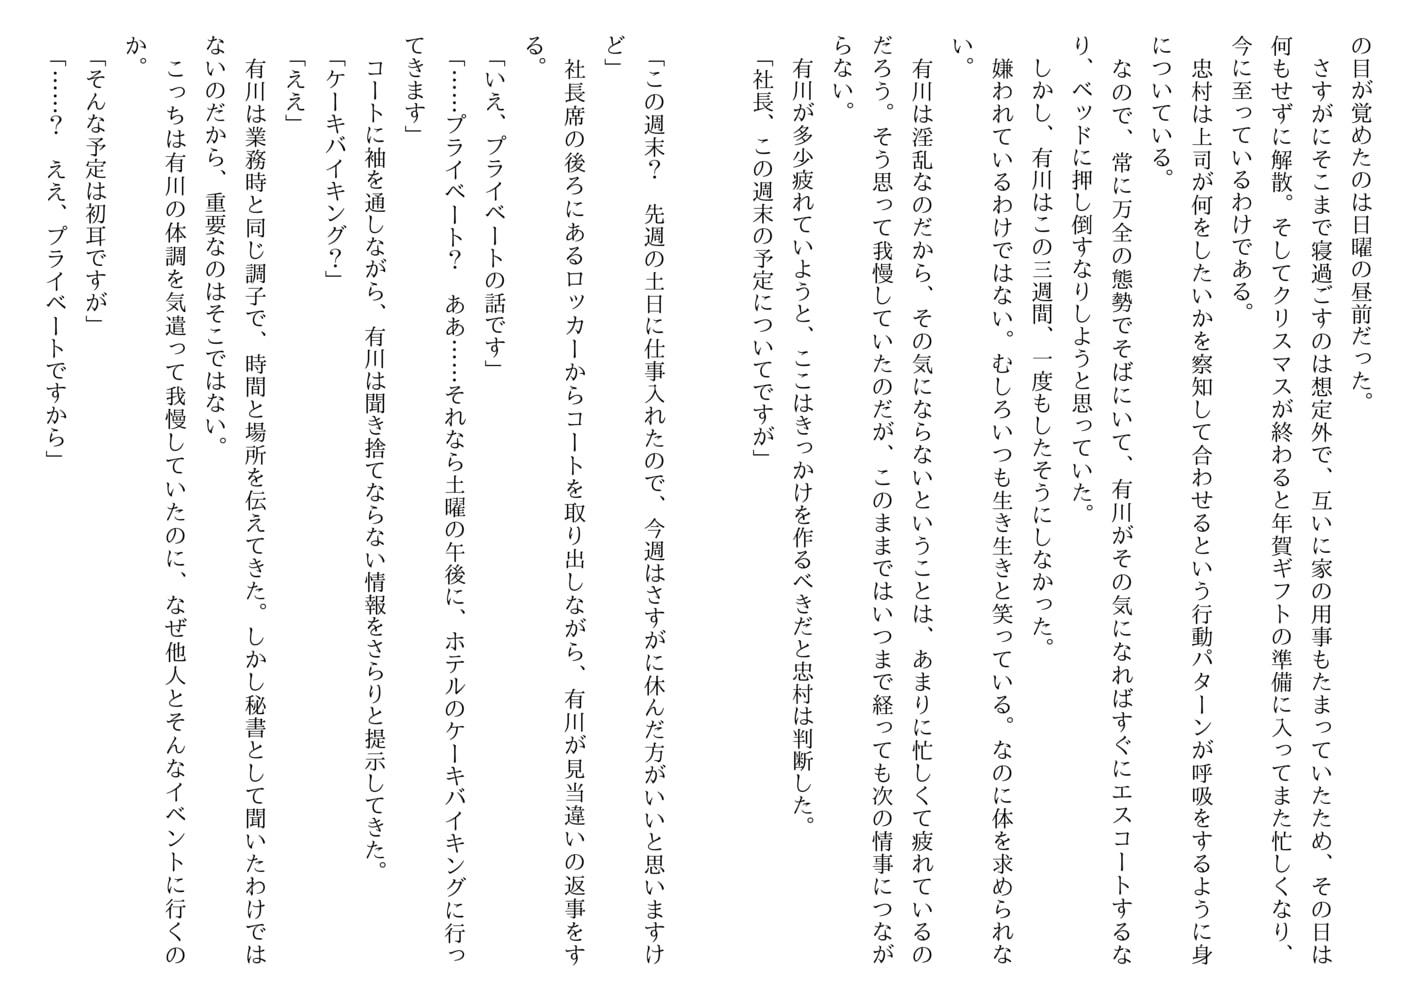 の目が覚めたのは日曜の昼前だった。
　さすがにそこまで寝過ごすのは想定外で、互いに家の用事もたまっていたため、その日は
何もせずに解散。そしてクリスマスが終わると年賀ギフトの準備に入ってまた忙しくなり、
今に至っているわけである。
　忠村は上司が何をしたいかを察知して合わせるという行動パターンが呼吸をするように身
についている。
　なので、常に万全の態勢でそばにいて、有川がその気になればすぐにエスコートするな
り、ベッドに押し倒すなりしようと思っていた。
　しかし、有川はこの三週間、一度もしたそうにしなかった。
　嫌われているわけではない。むしろいつも生き生きと笑っている。なのに体を求められな
い。
　有川は淫乱なのだから、その気にならないということは、あまりに忙しくて疲れているの
だろう。そう思って我慢していたのだが、このままではいつまで経っても次の情事につなが
らない。
　有川が多少疲れていようと、ここはきっかけを作るべきだと忠村は判断した。
「社長、この週末の予定についてですが」
「この週末？　先週の土日に仕事入れたので、今週はさすがに休んだ方がいいと思いますけ
ど」
　社長席の後ろにあるロッカーからコートを取り出しながら、有川が見当違いの返事をす
る。
「いえ、プライベートの話です」
「……プライベート？　ああ……それなら土曜の午後に、ホテルのケーキバイキングに行っ
てきます」
　コートに袖を通しながら、有川は聞き捨てならない情報をさらりと提示してきた。
「ケーキバイキング？」
「ええ」
　有川は業務時と同じ調子で、時間と場所を伝えてきた。しかし秘書として聞いたわけでは
ないのだから、重要なのはそこではない。
　こっちは有川の体調を気遣って我慢していたのに、なぜ他人とそんなイベントに行くの
か。
「そんな予定は初耳ですが」
「……？　ええ、プライベートですから」